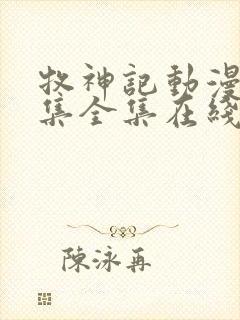 牧神記動漫
集全集在綫
陳泳再